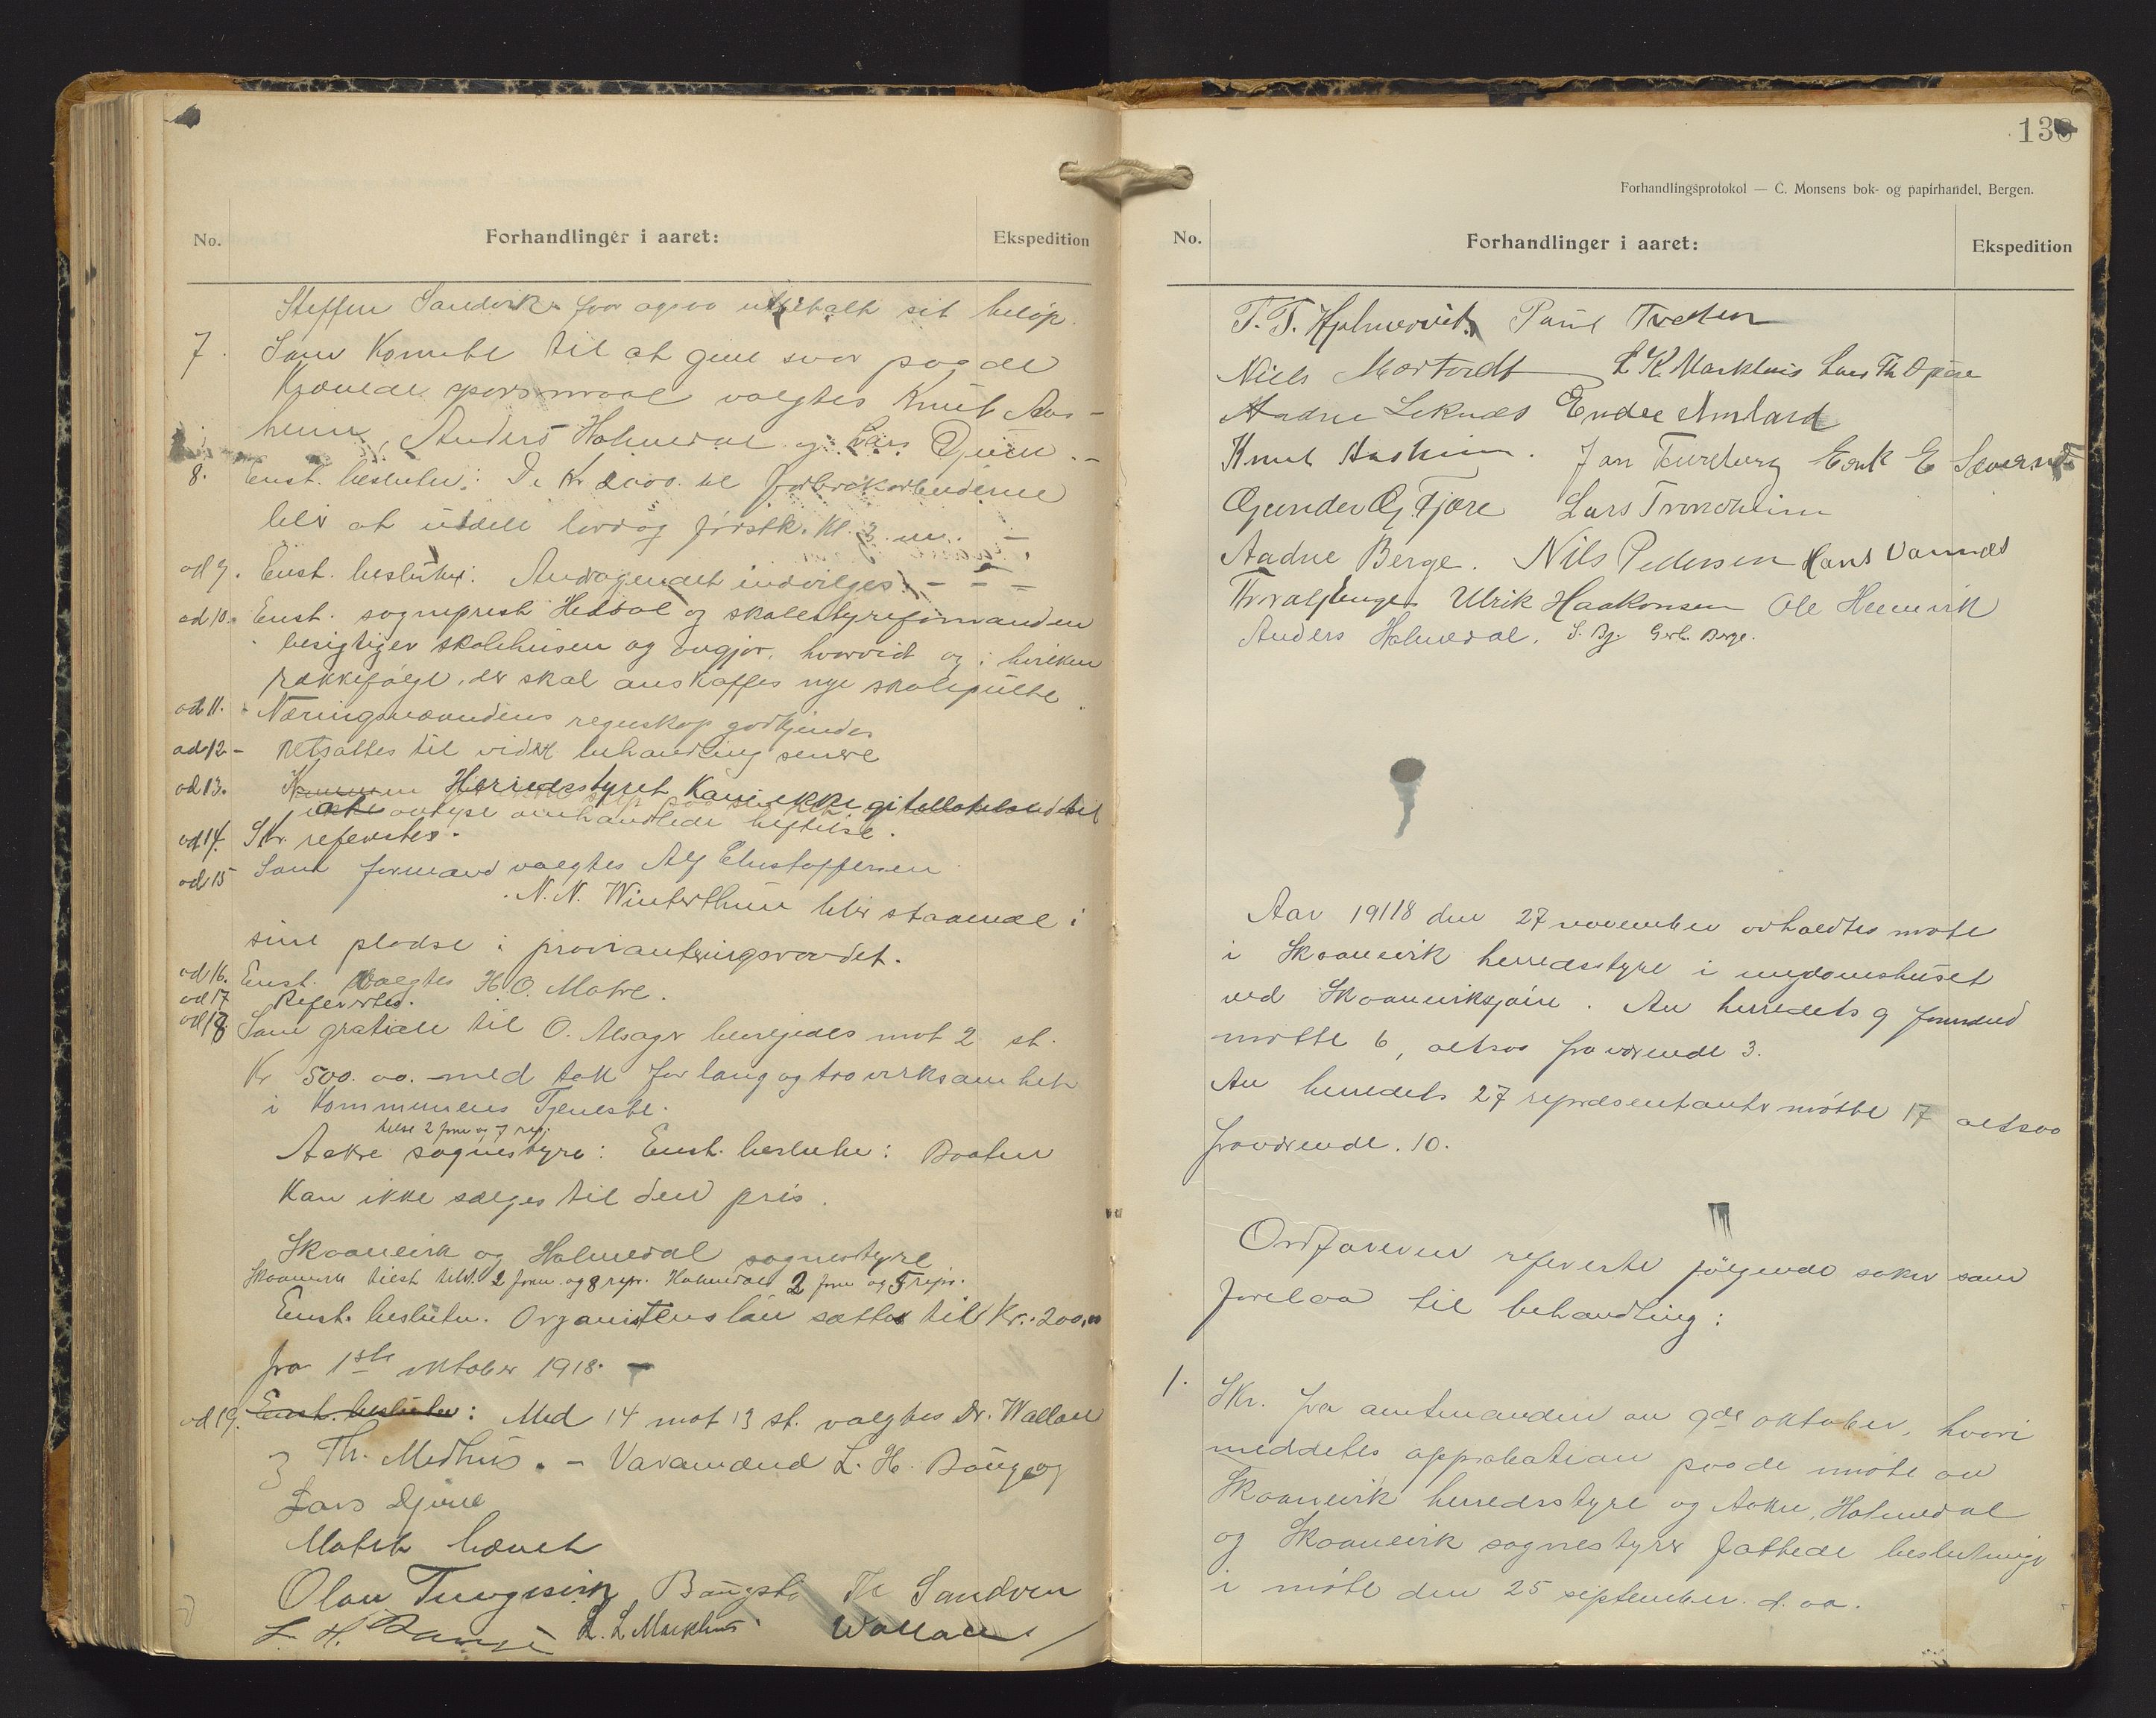 No.
Forhandlinger i aaret:
Ekspedition
Steffen Sandvik faar ogsaa utbetalt sit beløp.
7. Som Komite til at give svar paa de
krævede spørsmaal valgtes Knut Aas-
heim, Anders Holmedal og Lars Djuve.-
8. Enst. beslutn: De Kr 2000. til
blir at utdele lørdag førstk. Kl. 3 em. -
ad 9. Enst. beslutn: Andragendet indvilges. - - =
ad 10. Enst. sogneprest Hedbal og skolestyreformanden
besigtiger skolehusen og avgjør, hvorvidt og i hvilken
rækkefølge, der skal anskaffes nye skolepulte.
ad 11. Næringsnævndens regnskap godkjendes
ad 12 - Utsattes til vider behandling senere
ad 13. Herredsstyret Kan ikke gi tillatelse til
avløse omhandlede heftelse.
ad 14. Skr. refertes.
ad 15 Som formand valgtes Alf Christoffersen
N. N. Winterthun blir staaende i
sine pladse i provianteringsraadet.
ad 16. Enst. valgtes H. O. Matre.
ad 17 Refertes.
ad 18. Som gratiale til O. Alsager bevilgedes mot 2 st.
Kr 500.00. med tak for lang og tro virksamhet
i Kommunens Tjeneste.
tilst 2 form og 7 rep.
Aakre sognestyre: Enst. beslutn: Baaten
Kan ikke sælges til den pris.
Skaanevik og Holmedal sognestyre
Skaanevik tilst. 2 form. og 8 repr. Holmedal 2 form og 5 repr.
Enst. beslutn. Organistens løn sættes til Kr. 200,00
fra 1ste oktober 1918. -
ad 19. Enst. beslutn: Med 14 mot 13 st. valgtes Dr. Wallace
og Th. Medhus. - Varamænd L. H. Bauge og
Lars Djuve
Møtet hævet
Olav Tungesvik Baugstø Th Sandven
L. H. Bauge L. L. Markhus Wallace
138
Forhandlingsprotokol — C. Monsens bok- og papirhandel, Bergen.
No.
Forhandlinger i aaret:
Ekspedition
T. T. Hjelmervik Paul Tveten
Niels Mortveidt L K. Markhus Lars Th Opsæe
Aadne Leknes Endre Amland
Knut Aasheim. Jan Tureborg Erik E
Gunder G. Fjære Lars Trondheim
Aadne Berge. Nils Pedersen Hans Vannes
Ulrik Haakonsen Ole Heimvik
Anders Holmedal. S. Bg. Gerh. Berge.
Aar 1918 den 27 november avholdtes møte
i Skaanevik herredsstyre i ungdomshuset
ved Skaaneviksjøen. Av herredets 9 formænd
møtte 6, altsaa fraværende 3.
Av herredets 27 repræsentanter møtte 17 altsaa
fraværende. 10.
Ordføreren referte følgende saker som
forelaa til behandling:
1. Skr. fra amtmanden av 9de oktober, hvori
meddeles approbation paa de møte av
Skaanevik herredsstyre og Aakre, Holmedal
og Skaanevik sognestyrer fattede beslutninger
i møte den 25 september d. aa.